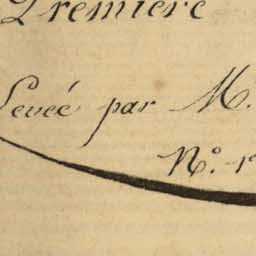 Première
Levée par M.
N.° 1